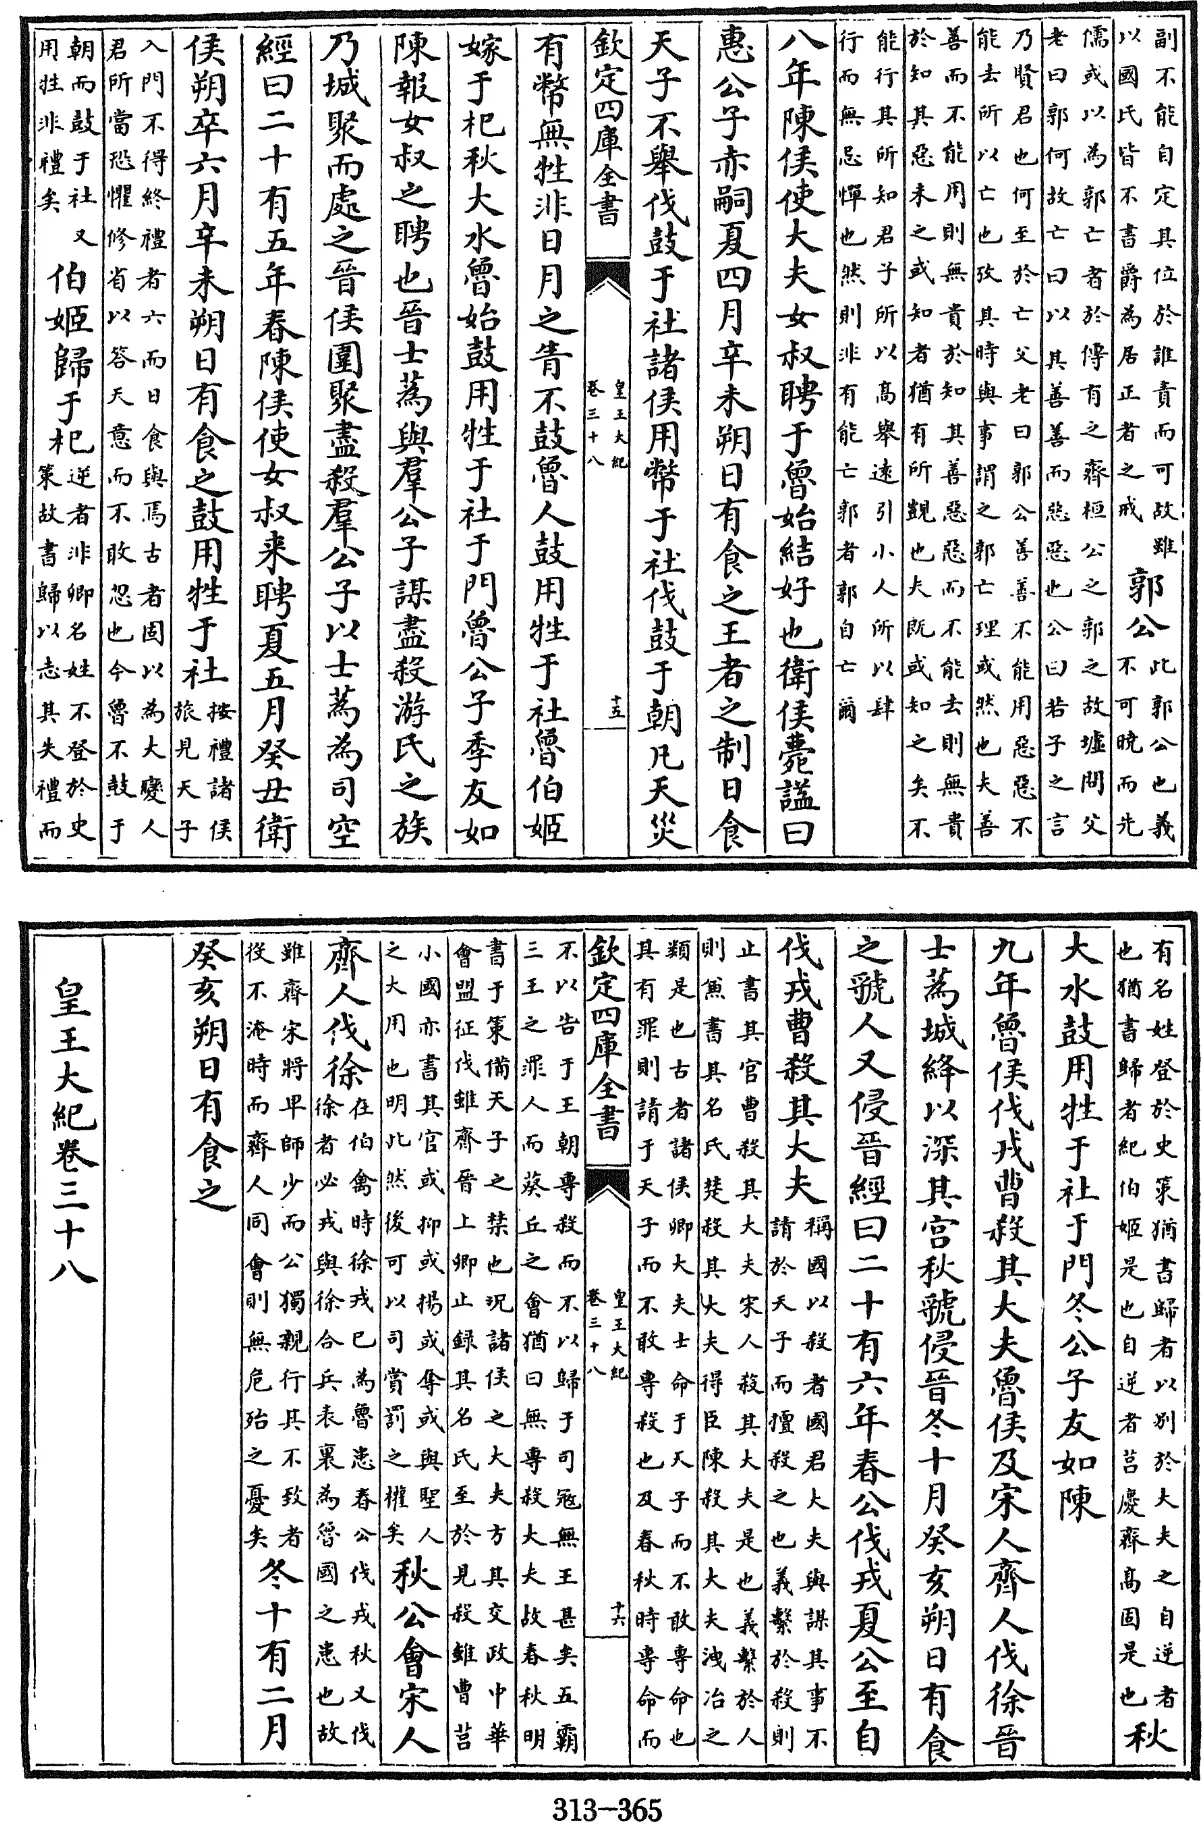 副不能自定其位於誰責而可故雖
以國氏皆不書爵為居正者之戒
郭公
此郭公也義
不可曉而先
儒或以為郭亡者於傳有之齊桓公之郭之故墟問父
老曰郭何故亡曰以其善善而惡惡也公曰若子之言
乃賢君也何至於亡父老曰郭公善善不能用惡惡不
能去所以亡也攷其時與事謂之郭亡理或然也夫善
善而不能用則無貴於知其善惡惡而不能去則無貴
於知其惡未之或知者猶有所覬也夫既或知之矣不
能行其所知君子所以高舉遠引小人所以肆
行而無忌憚也然則非有能亡郭者郭自亡爾
八年陳侯使大夫女叔聘于魯始結好也衛侯薨諡曰
惠公子赤嗣夏四月辛未朔日有食之王者之制日食
天子不舉伐鼓于社諸侯用幣于社伐鼓于朝凡天災
欽定四庫全書
皇王大紀
卷三十八
十五
有幣無牲非日月之眚不鼓魯人鼓用牲于社魯伯姬
嫁于杞秋大水魯始鼓用牲于社于門魯公子季友如
陳報女叔之聘也晉士蒍與羣公子謀盡殺游氏之族
乃城聚而處之晉侯圍聚盡殺羣公子以士蒍為司空
經曰二十有五年春陳侯使女叔來聘夏五月癸丑衛
侯朔卒六月辛未朔日有食之鼓用牲于社
按禮諸侯
旅見天子
入門不得終禮者六而日食與焉古者固以為大變人
君所當恐懼修省以答天意而不敢忽也今魯不鼓于
朝而鼓于社又
用牲非禮矣
伯姬歸于杞
逆者非卿名姓不登於史
策故書歸以志其失禮而
有名姓登於史策猶書歸者以別於大夫之自逆者
也猶書歸者紀伯姬是也自逆者莒慶齊高固是也
秋
大水鼓用牲于社于門冬公子友如陳
九年魯侯伐戎曹殺其大夫魯侯及宋人齊人伐徐晉
士蒍城絳以深其宮秋虢侵晉冬十月癸亥朔日有食
之虢人又侵晉經曰二十有六年春公伐戎夏公至自
伐戎曹殺其大夫
稱國以殺者國君大夫與謀其事不
請於天子而擅殺之也義繫於殺則
止書其官曹殺其大夫宋人殺其大夫是也義繫於人
則兼書其名氏楚殺其大夫得臣陳殺其大夫洩冶之
類是也古者諸侯卿大夫士命于天子而不敢專命也
其有罪則請于天子而不敢專殺也及春秋時專命而
欽定四庫全書
皇王大紀
卷三十八
十六
不以告于王朝專殺而不以歸于司冦無王甚矣五霸
三王之罪人而葵丘之會猶曰無專殺大夫故春秋明
書于策備天子之禁也況諸侯之大夫方其交政中華
會盟征伐雖齊晉上卿止録其名氏至於見殺雖曹莒
小國亦書其官或抑或揚或奪或與聖人
之大用也明此然後可以司賞罰之權矣
秋公會宋人
齊人伐徐
在伯禽時徐戎已為魯患春公伐戎秋又伐
徐者必戎與徐合兵表裏為魯國之患也故
雖齊宋將卑師少而公獨親行其不致者
役不淹時而齊人同會則無危殆之憂矣
冬十有二月
癸亥朔日有食之
皇王大紀卷三十八
313-365